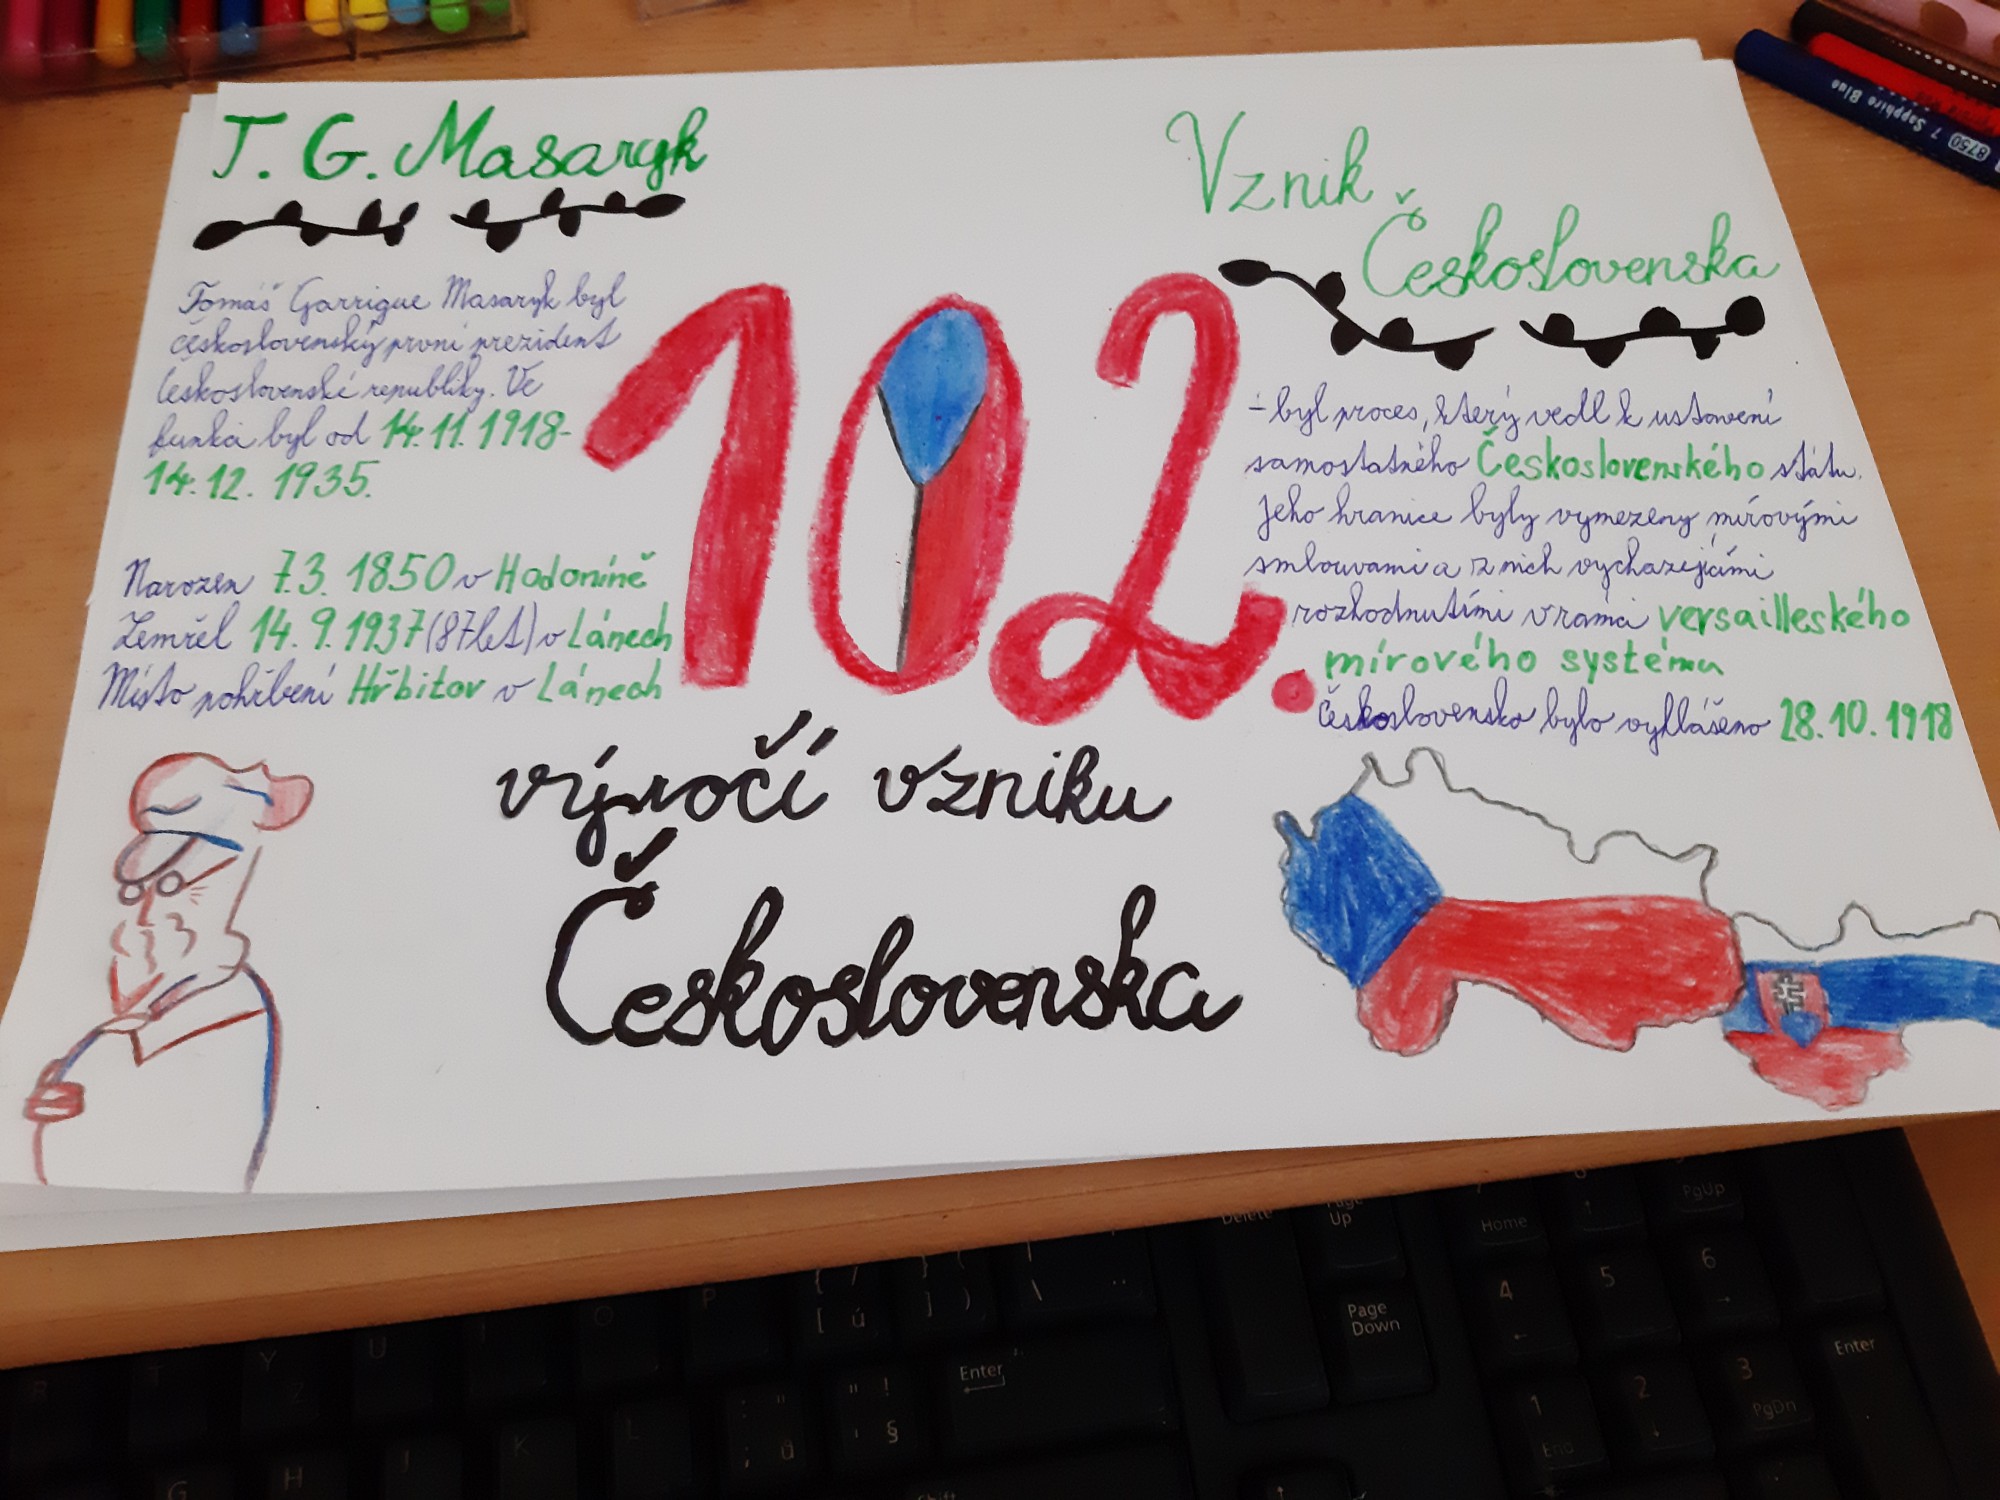 T. G. Masaryk
Tomáš Garrigue Masaryk byl
československý první prezident
Československé republiky. Ve
funkci byl od 14. 11. 1918-
14. 12. 1935.
Narozen 7.3. 1850 v Hodoníně
Zemřel 14. 9. 1937 (87let) v Lánech
Místo pohřbení Hřbitov v Lánech
102.
výročí vzniku
Československa
Vznik
Československa
- byl proces, který vedl k ustavení
samostatného Československého státu.
Jeho hranice byly vymezeny mírovými
smlouvami a z nich vycházejícími
rozhodnutími v rámci versailleského
mírového systému
Československo bylo vyhlášeno 28.10.1918
7 Sapphire Blue
8750
Delete
Page
Up
Home
PgUp
Page
Down
4
5
6
Enter
Enter
1
End
2
3
PgDn
T
Y
Z
U
P
G
H
J
K
L
[ ú
] )
\
; ů
§
Shift